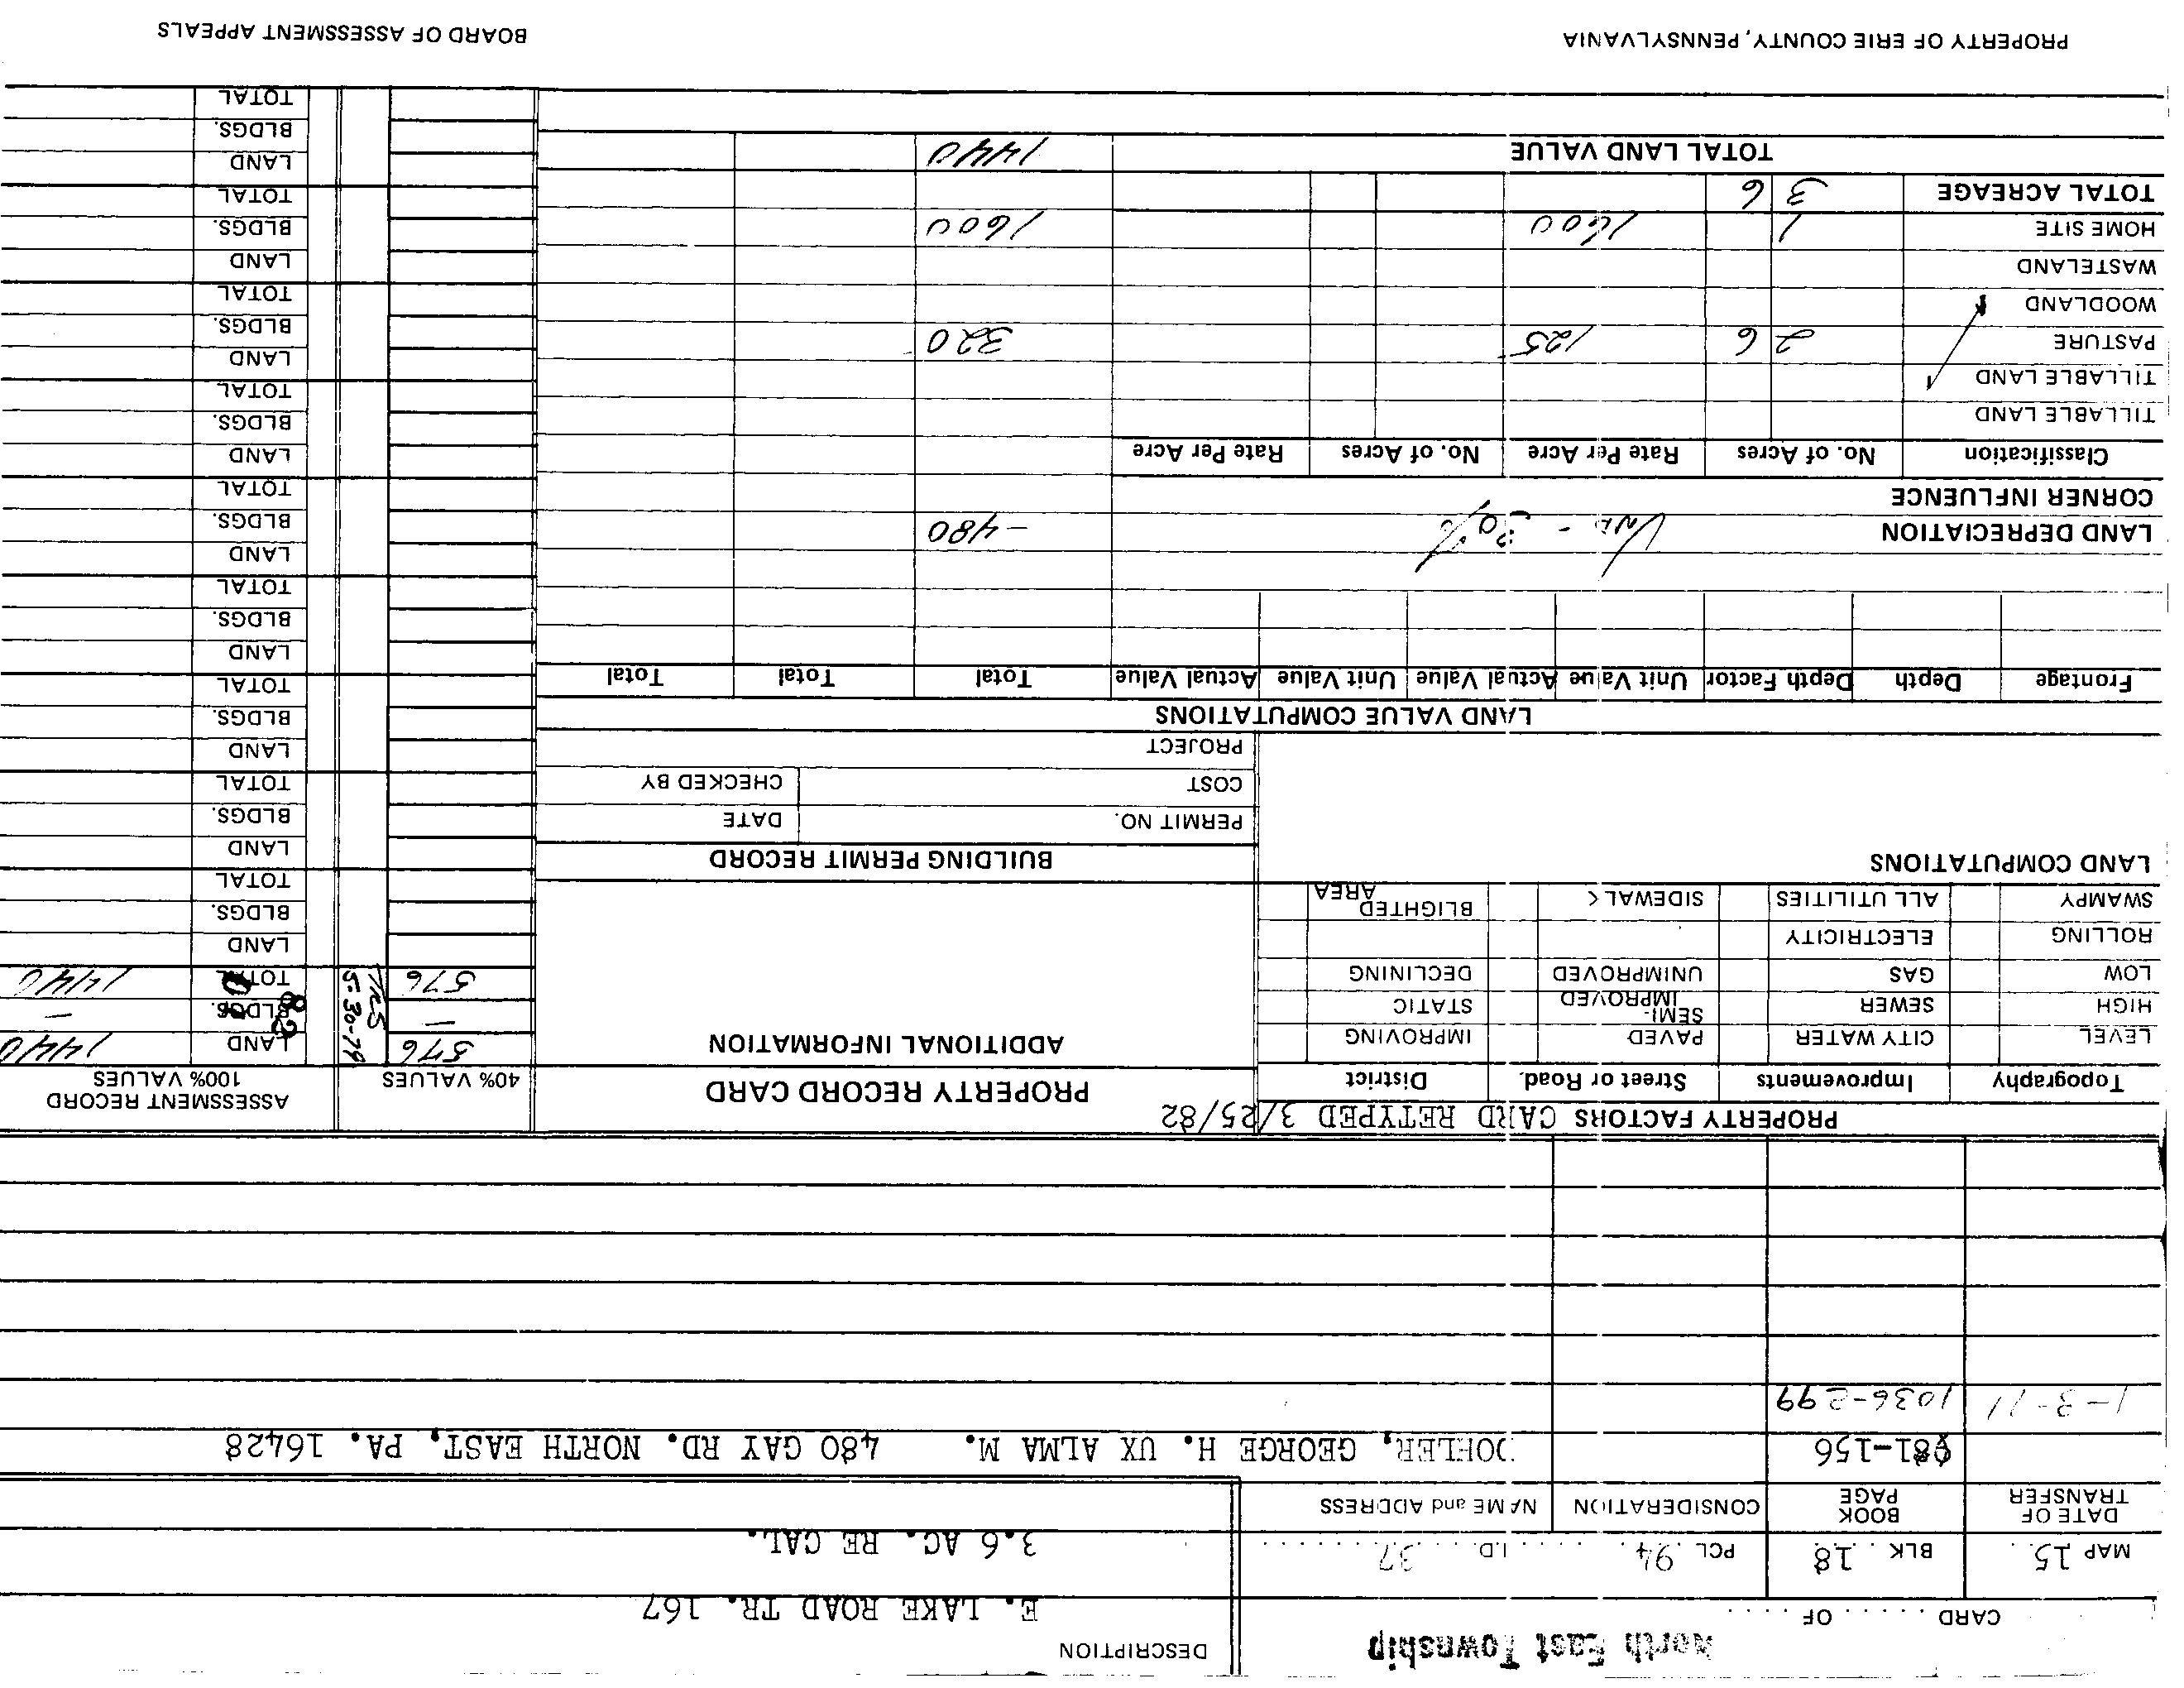 North East Township
DESCRIPTION
CARD . . . . . . OF . . . . .
E. LAKE ROAD TR. 167
MAP 15 BLK 18 PCL 94 I.D. 37
3.6 AC. RE CAL.
DATE OF TRANSFER BOOK PAGE CONSIDERATION NAME and ADDRESS
981-156 GEORGE H. UX ALMA M. 480 GAY RD. NORTH EAST, PA. 16428
1-3-11 1036-299
PROPERTY FACTORS CARD RETYPED 3/25/82
Topography Improvements Street or Road. District
LEVEL CITY WATER PAVED IMPROVING
HIGH SEWER SEMI-IMPROVED STATIC
LOW GAS UNIMPROVED DECLINING
ROLLING ELECTRICITY
SWAMPY ALL UTILITIES SIDEWALK BLIGHTED AREA
LAND COMPUTATIONS
PROPERTY RECORD CARD
ADDITIONAL INFORMATION
BUILDING PERMIT RECORD
PERMIT NO. DATE
COST CHECKED BY
PROJECT
LAND VALUE COMPUTATIONS
Frontage Depth Depth Factor Unit Value Actual Value Unit Value Actual Value Total Total Total
LAND DEPRECIATION - 30% -480
CORNER INFLUENCE
Classification No. of Acres Rate Per Acre No. of Acres Rate Per Acre
TILLABLE LAND
TILLABLE LAND
PASTURE 2 6 125 320
WOODLAND
WASTELAND
HOME SITE 1 1600 1600
TOTAL ACREAGE 3 6
TOTAL LAND VALUE 1440
40% VALUES
ASSESSMENT RECORD
100% VALUES
576 5-30-79 82 LAND 1440
— BLDGS. —
576 TOTAL 1440
LAND
BLDGS.
TOTAL
LAND
BLDGS.
TOTAL
LAND
BLDGS.
TOTAL
LAND
BLDGS.
TOTAL
LAND
BLDGS.
TOTAL
LAND
BLDGS.
TOTAL
LAND
BLDGS.
TOTAL
LAND
BLDGS.
TOTAL
LAND
BLDGS.
TOTAL
PROPERTY OF ERIE COUNTY, PENNSYLVANIA
BOARD OF ASSESSMENT APPEALS